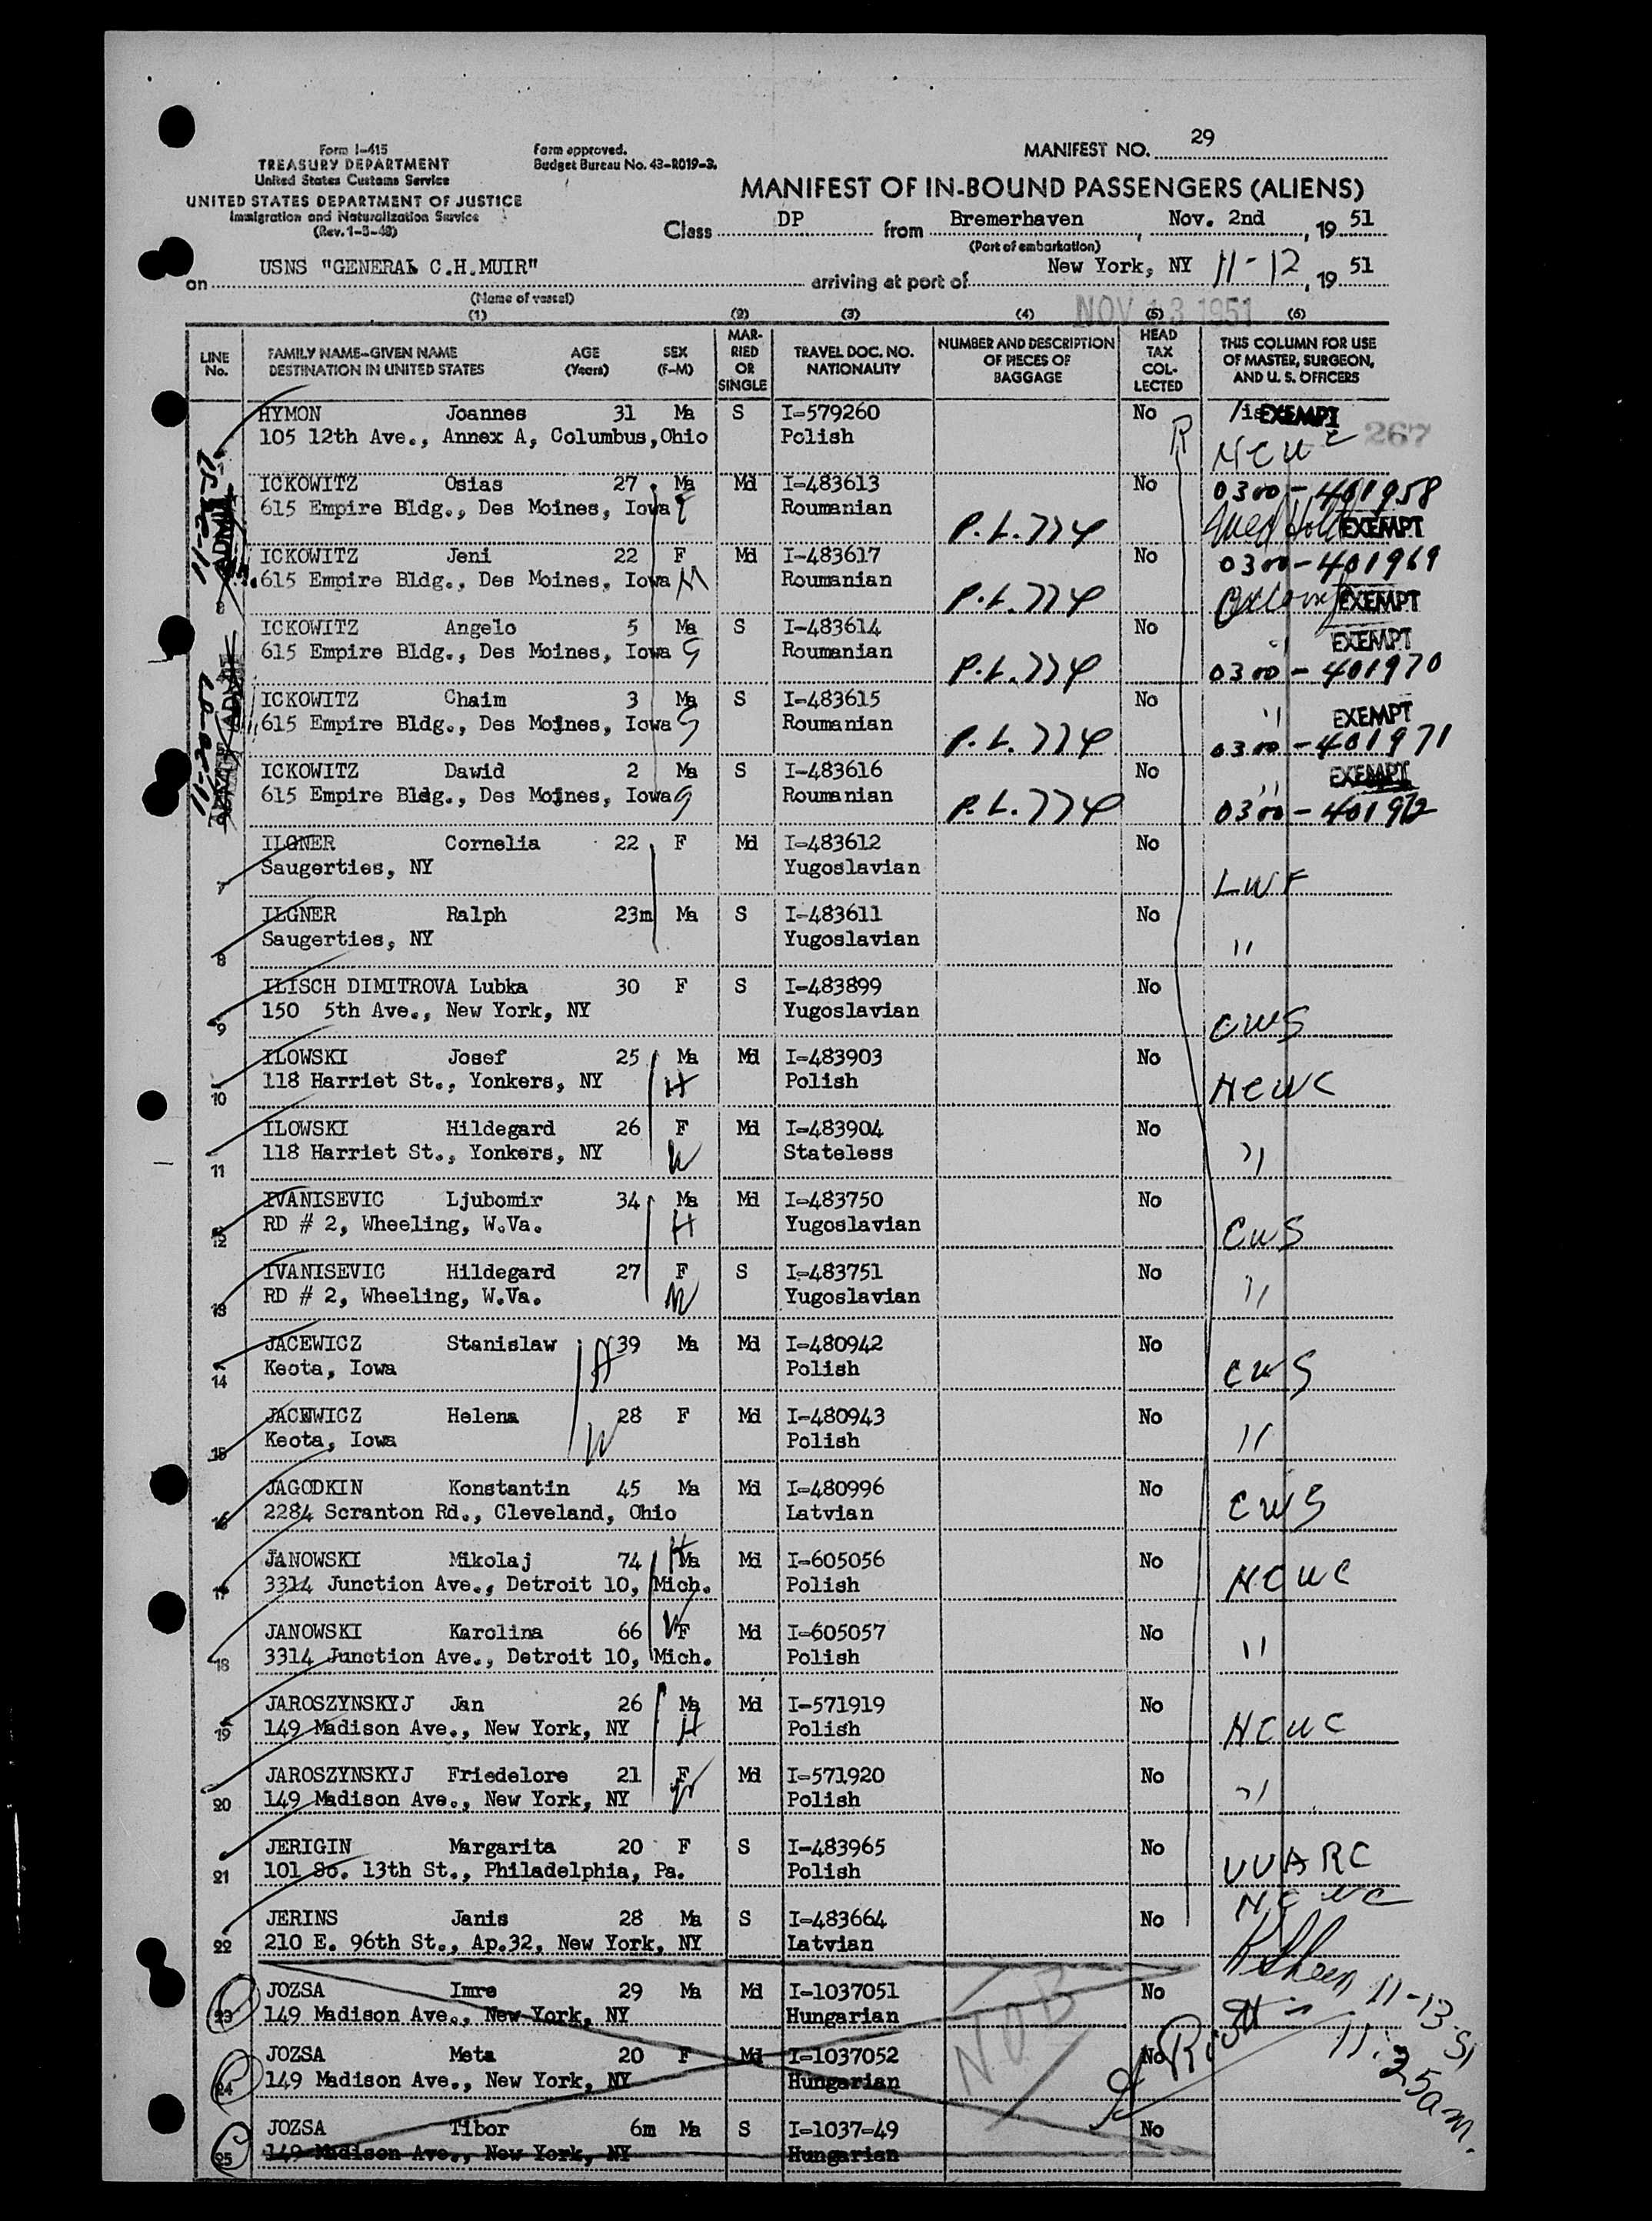 Form I-415
TREASURY DEPARTMENT
United States Customs Service
UNITED STATES DEPARTMENT OF JUSTICE
Immigration and Naturalization Service
(Rev. 1-3-48)
Form approved.
Budget Bureau No. 43-R019-3.
MANIFEST NO. 29
MANIFEST OF IN-BOUND PASSENGERS (ALIENS)
Class DP from Bremerhaven, Nov. 2nd, 19 51
(Port of embarkation)
on USNS "GENERAL C.H.MUIR" arriving at port of New York, NY 11-12, 19 51
(Name of vessel)
NOV 13 1951
(1) (2) (3) (4) (5) (6)
LINE No. FAMILY NAME-GIVEN NAME DESTINATION IN UNITED STATES AGE (Years) SEX (F-M) MARRIED OR SINGLE TRAVEL DOC. NO. NATIONALITY NUMBER AND DESCRIPTION OF PIECES OF BAGGAGE HEAD TAX COLLECTED THIS COLUMN FOR USE OF MASTER, SURGEON, AND U. S. OFFICERS
HYMON Joannes 31 Ma S I-579260 No EXEMPT
105 12th Ave., Annex A, Columbus, Ohio Polish R 267
ICKOWITZ Osias 27 Ma Md I-483613 No 0300-401958
615 Empire Bldg., Des Moines, Iowa Roumanian P.L.774 EXEMPT
ICKOWITZ Jeni 22 F Md I-483617 No 0300-401969
615 Empire Bldg., Des Moines, Iowa Roumanian P.L.774 EXEMPT
ICKOWITZ Angelo 5 Ma S I-483614 No " EXEMPT
615 Empire Bldg., Des Moines, Iowa Roumanian P.L.774 0300-401970
ICKOWITZ Chaim 3 Ma S I-483615 No " EXEMPT
615 Empire Bldg., Des Moines, Iowa Roumanian P.L.774 0300-401971
ICKOWITZ Dawid 2 Ma S I-483616 No " EXEMPT
615 Empire Bldg., Des Moines, Iowa Roumanian P.L.774 0300-401972
ILGNER Cornelia 22 F Md I-483612 No
7 Saugerties, NY Yugoslavian LWF
ILGNER Ralph 23m Ma S I-483611 No
8 Saugerties, NY Yugoslavian "
ILISCH DIMITROVA Lubka 30 F S I-483899 No
9 150 5th Ave., New York, NY Yugoslavian CWS
ILOWSKI Josef 25 Ma Md I-483903 No
10 118 Harriet St., Yonkers, NY H Polish NCWC
ILOWSKI Hildegard 26 F Md I-483904 No
11 118 Harriet St., Yonkers, NY W Stateless "
IVANISEVIC Ljubomir 34 Ma Md I-483750 No
12 RD # 2, Wheeling, W.Va. H Yugoslavian CWS
IVANISEVIC Hildegard 27 F S I-483751 No
13 RD # 2, Wheeling, W.Va. W Yugoslavian "
JACEWICZ Stanislaw H 39 Ma Md I-480942 No
14 Keota, Iowa Polish CWS
JACEWICZ Helena 28 F Md I-480943 No
15 Keota, Iowa W Polish "
JAGODKIN Konstantin 45 Ma Md I-480996 No
16 2284 Scranton Rd., Cleveland, Ohio Latvian CWS
JANOWSKI Mikolaj 74 H Ma Md I-605056 No
17 3314 Junction Ave., Detroit 10, Mich. Polish NCWC
JANOWSKI Karolina 66 W F Md I-605057 No
18 3314 Junction Ave., Detroit 10, Mich. Polish "
JAROSZYNSKYJ Jan 26 Ma Md I-571919 No
19 149 Madison Ave., New York, NY H Polish NCWC
JAROSZYNSKYJ Friedelore 21 F Md I-571920 No
20 149 Madison Ave., New York, NY W Polish "
JERIGIN Margarita 20 F S I-483965 No
21 101 So. 13th St., Philadelphia, Pa. Polish UUARC
JERINS Janis 28 Ma S I-483664 No NCWC
22 210 E. 96th St., Ap.32, New York, NY Latvian
JOZSA Imre 29 Ma Md I-1037051 No 11-13-51
23 149 Madison Ave., New York, NY Hungarian NOB
JOZSA Meta 20 F Md I-1037052 No 11:25am.
24 149 Madison Ave., New York, NY Hungarian
JOZSA Tibor 6m Ma S I-1037-49 No
25 149 Madison Ave., New York, NY Hungarian